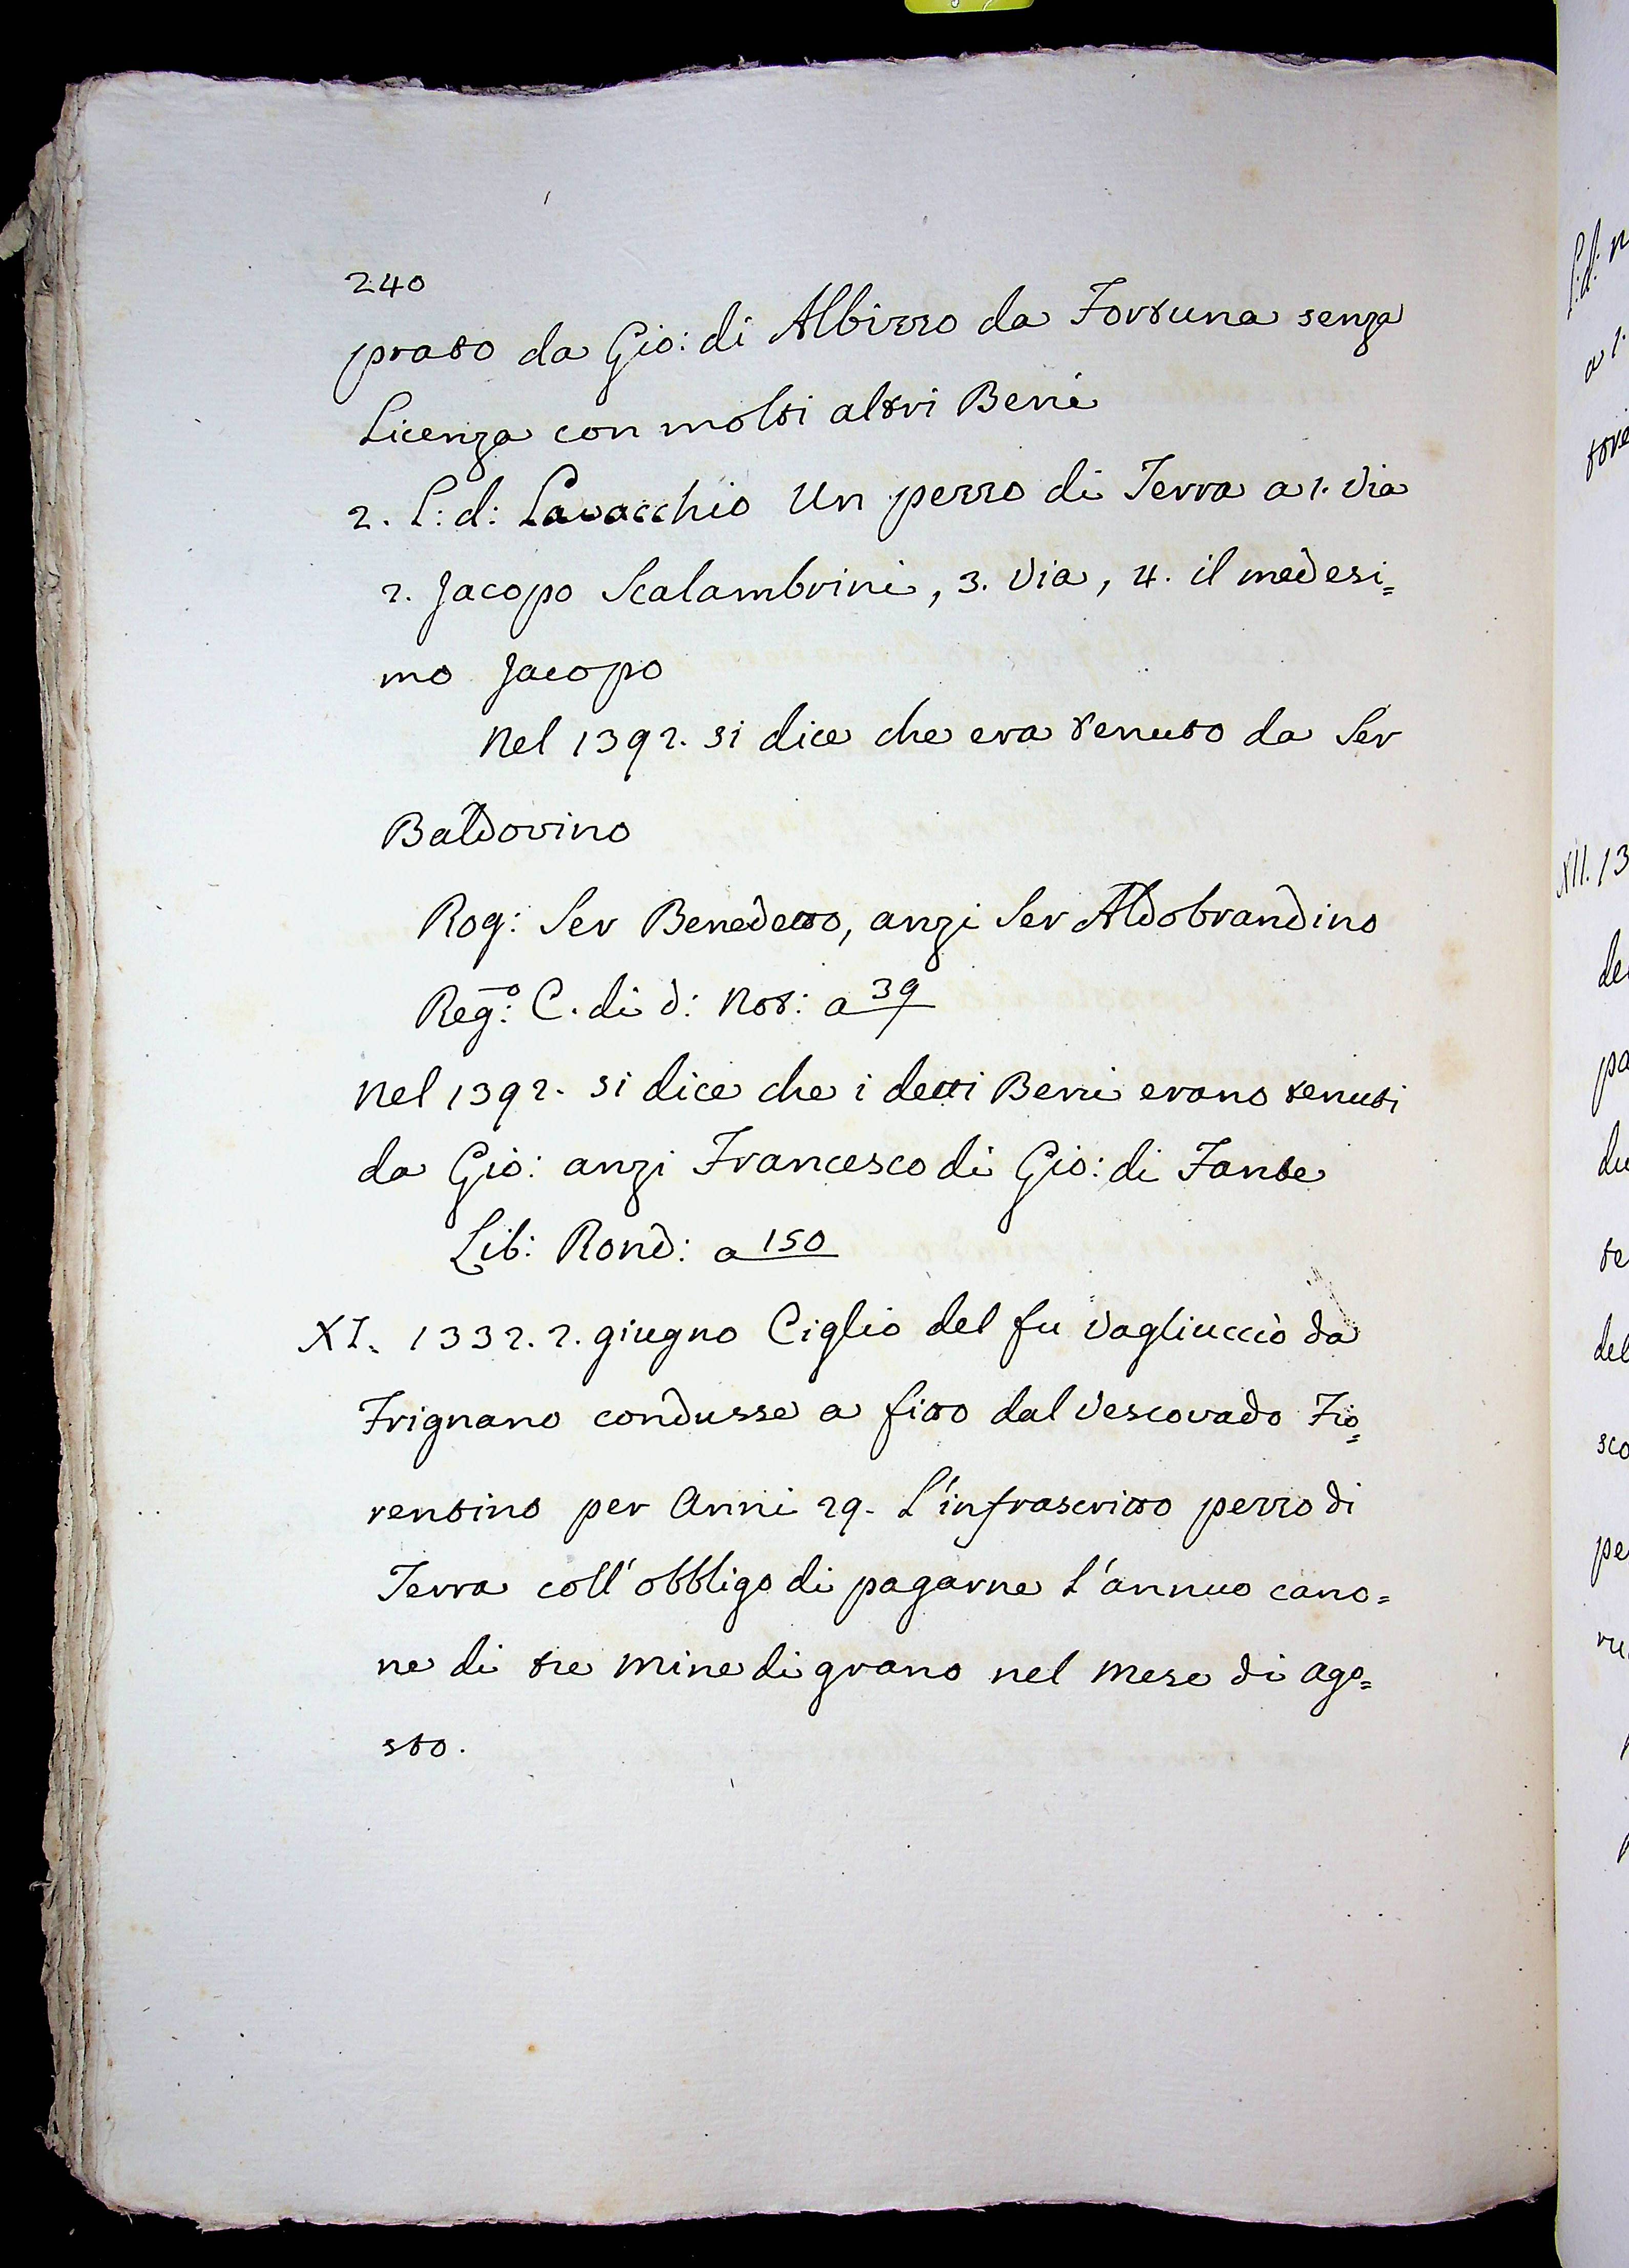 240
prato da Gio: di Albizzo da Fortuna senza
Licenza con molti altri Beni
2. L: d: Lavacchio Un pezzo di Terra a 1. Via
2. Jacopo Scalambrini, 3. Via, 4. il medesi=
mo Jacopo
Nel 1392. si dice che era tenuto da Ser
Baldovino
Rog: Ser Benedetto, anzi Ser Aldobrandino
Reg:º C. di d: Not: a 39
Nel 1392. si dice che i detti Beni erano tenuti
da Gio: anzi Francesco di Gio: di Fante
Lib: Rond: a 150
XI. 1332. 2. giugno Ciglio del fu Vagliuccio da
Frignano condusse a fitto dal Vescovado Fio=
rentino per Anni 29. L'infrascritto pezzo di
Terra coll'obbligo di pagarne l'annuo cano=
ne di tre Mine di grano nel Mese di Ago=
sto.
XII. 13